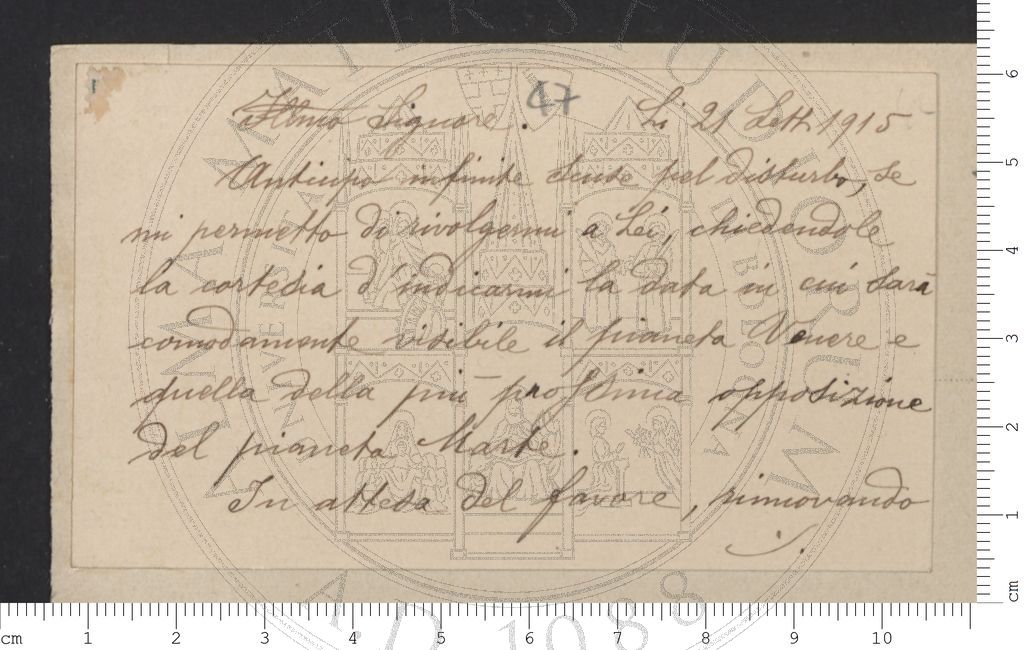 47
Illmo Signore. Li 21 Sett 1915
Anticipo infinite scuse pel disturbo, se
mi permetto di rivolgermi a Lei, chiedendole
la cortesia d'indicarmi la data in cui sarà
comodamente visibile il pianeta Venere e
quella della più prossima opposizione
del pianeta Marte.
In attesa del favore, rinnovando
ALMA MATER STUDIORUM
UNIVERSITÀ DI BOLOGNA
A.D. 1088
cm 1 2 3 4 5 6 7 8 9 10
6
5
4
3
2
1
cm